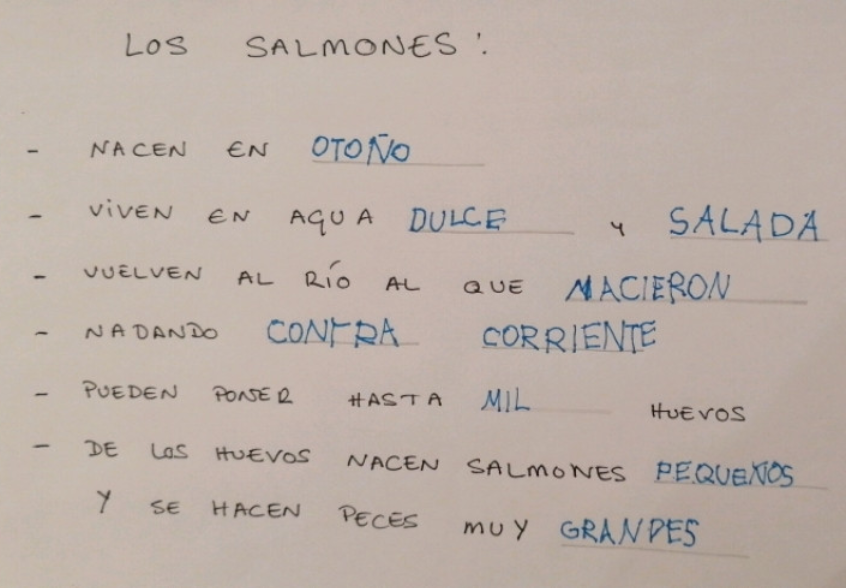 LOS SALMONES:
- NACEN EN OTOÑO
- VIVEN EN AGUA DULCE Y SALADA
- VUELVEN AL RÍO AL QUE NACIERON
- NADANDO CONTRA CORRIENTE
- PUEDEN PONER HASTA MIL HUEVOS
- DE LOS HUEVOS NACEN SALMONES PEQUEÑOS
Y SE HACEN PECES MUY GRANDES